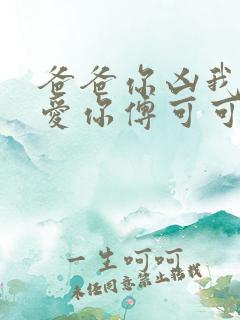 爸爸你凶我
爱你傅可可
一生呵呵
未经同意禁止搭载